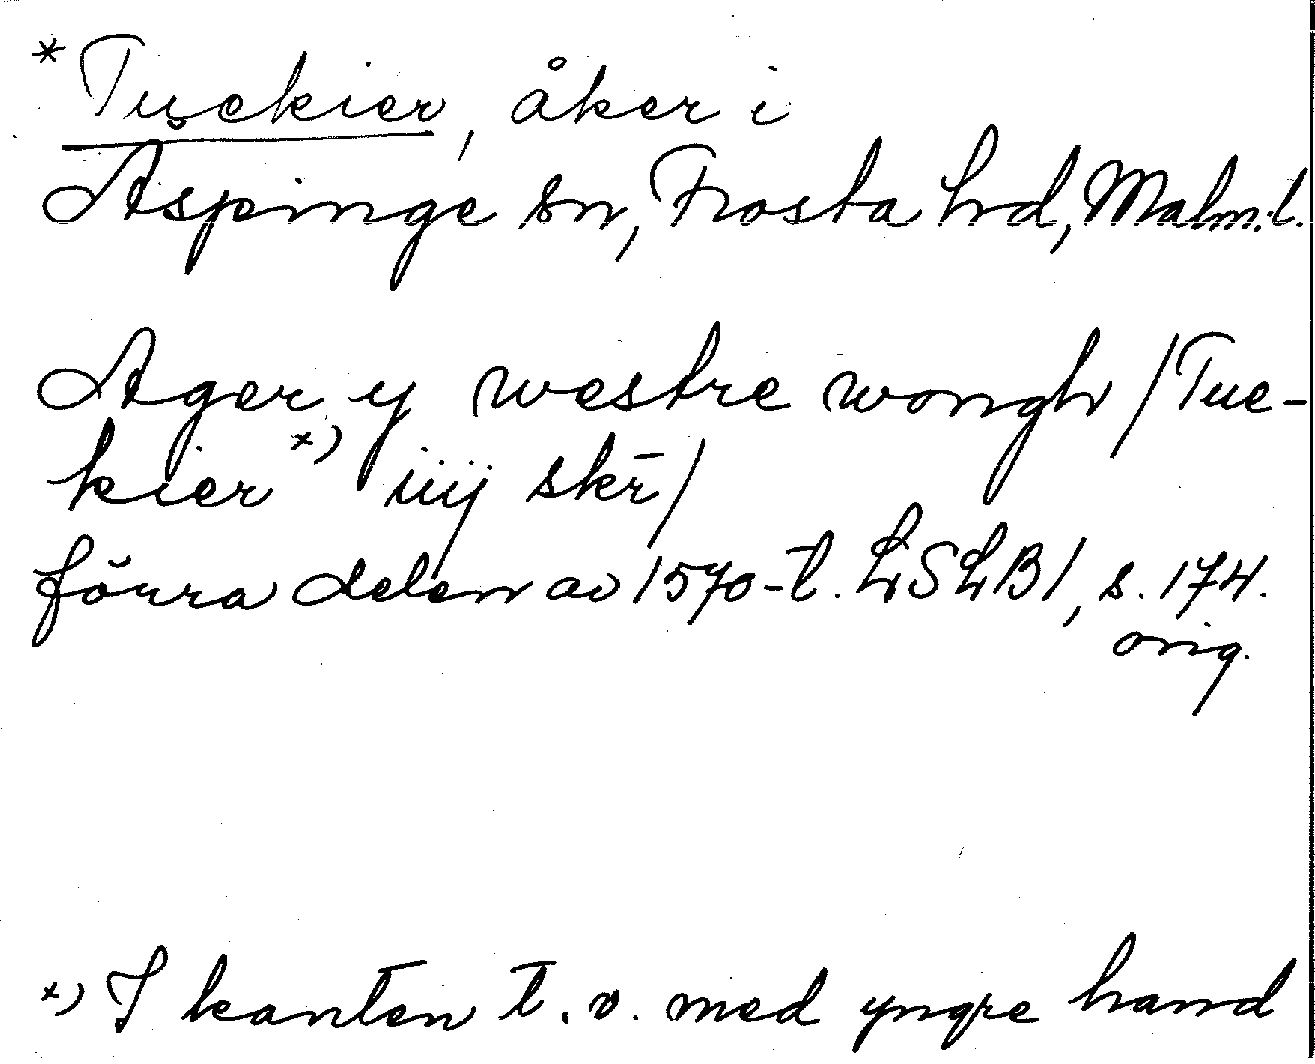 * Tuekier, åker i
Aspinge sn, Frosta hd, Malm.l.
Ager y westre wongh /Tue-
kier *) iiij skr̄/
förra delen av 1570-t. LSLB1, s. 174.
orig.
*) I kanten t.v. med yngre hand